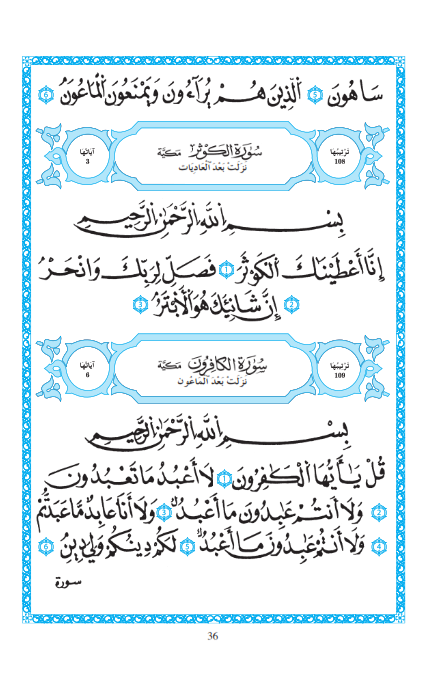 سَاهُونَ 5 الَّذِينَ هُمْ يُرَآءُونَ وَيَمْنَعُونَ الْمَاعُونَ 6
تَرْتيبُهَا 108
سُورَةُ الكَوْثَر مَكيَّة
نَزَلَتْ بَعْدَ الْعَاديَات
آيَاتُهَا 3
بِسْمِ اللَّهِ الرَّحْمَٰنِ الرَّحِيمِ
إِنَّا أَعْطَيْنَاكَ الْكَوْثَرَ 1 فَصَلِّ لِرَبِّكَ وَانْحَرْ
2 إِنَّ شَانِئَكَ هُوَ الْأَبْتَرُ 3
تَرْتيبُهَا 109
سُورَةُ الكَافِرُونَ مَكيَّة
نَزَلَتْ بَعْدَ الْمَاعُون
آيَاتُهَا 6
بِسْمِ اللَّهِ الرَّحْمَٰنِ الرَّحِيمِ
قُلْ يَا أَيُّهَا الْكَٰفِرُونَ 1 لَا أَعْبُدُ مَا تَعْبُدُونَ
2 وَلَا أَنتُمْ عَٰبِدُونَ مَا أَعْبُدُ 3 وَلَا أَنَا عَابِدٌ مَّا عَبَدتُّمْ
4 وَلَا أَنتُمْ عَٰبِدُونَ مَا أَعْبُدُ 5 لَكُمْ دِينُكُمْ وَلِيَ دِينِ 6
سورة
36